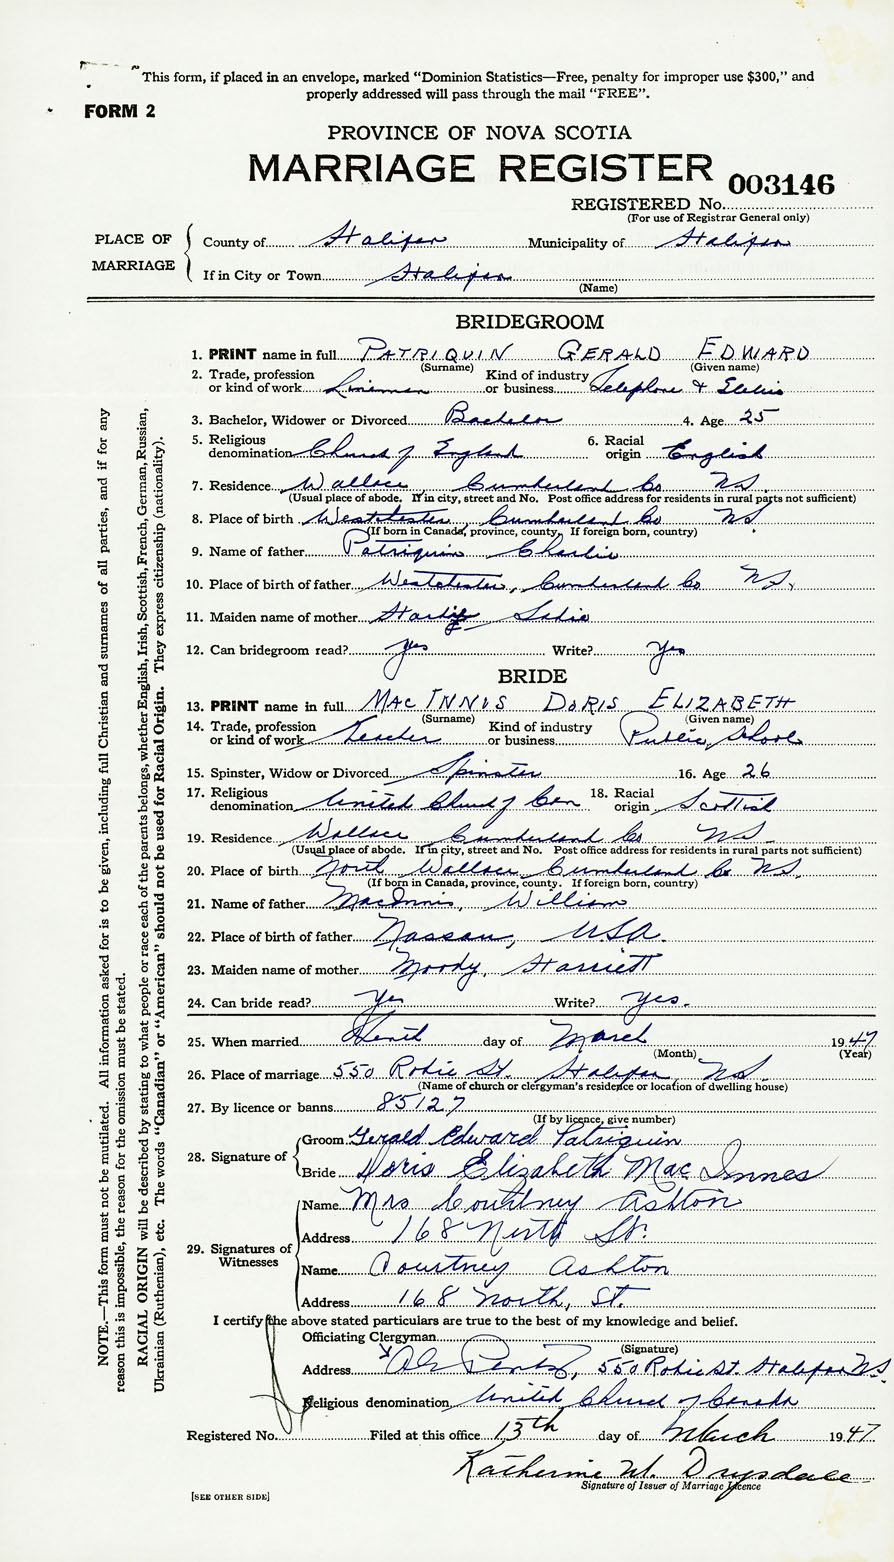 This form, if placed in an envelope, marked “Dominion Statistics—Free, penalty for improper use $300,” and
properly addressed will pass through the mail “FREE”.
FORM 2
PROVINCE OF NOVA SCOTIA
MARRIAGE REGISTER 003146
REGISTERED No.
(For use of Registrar General only)
PLACE OF MARRIAGE
County of Halifax Municipality of Halifax
If in City or Town Halifax
(Name)
BRIDEGROOM
1. PRINT name in full PATRIQUIN GERALD EDWARD
(Surname) (Given name)
2. Trade, profession or kind of work Lineman Kind of industry or business Telephone &
3. Bachelor, Widower or Divorced Bachelor 4. Age 25
5. Religious denomination Church of England 6. Racial origin English
7. Residence Wallace Cumberland Co NS.
(Usual place of abode. If in city, street and No. Post office address for residents in rural parts not sufficient)
8. Place of birth Westchester, Cumberland Co NS.
(If born in Canada, province, county. If foreign born, country)
9. Name of father Patriquin Charlie
10. Place of birth of father Westchester, Cumberland Co N.S.
11. Maiden name of mother Sadie
12. Can bridegroom read? yes Write? Yes
BRIDE
13. PRINT name in full MACINNIS DORIS ELIZABETH
(Surname) (Given name)
14. Trade, profession or kind of work Teacher Kind of industry or business Public School
15. Spinster, Widow or Divorced Spinster 16. Age 26
17. Religious denomination United Church of Can 18. Racial origin Scottish
19. Residence Wallace Cumberland Co NS.
(Usual place of abode. If in city, street and No. Post office address for residents in rural parts not sufficient)
20. Place of birth North Wallace Cumberland Co N.S.
(If born in Canada, province, county. If foreign born, country)
21. Name of father MacInnis, William
22. Place of birth of father Nassau, USA.
23. Maiden name of mother Moody, Harriett
24. Can bride read? Yes Write? Yes.
25. When married Tenth day of March 1947
(Month) (Year)
26. Place of marriage 550 Robie St. Halifax N.S.
(Name of church or clergyman's residence or location of dwelling house)
27. By licence or banns 85127
(If by licence, give number)
28. Signature of
Groom Gerald Edward Patriquin
Bride Doris Elizabeth MacInnes
29. Signatures of Witnesses
Name Mrs Courtney Ashton
Address 168 North St.
Name Courtney Ashton
Address 168 North, St.
I certify the above stated particulars are true to the best of my knowledge and belief.
Officiating Clergyman
(Signature)
Address 550 Robie St. Halifax N.S.
Religious denomination United Church of Canada
Registered No. Filed at this office 13th day of March 1947
Katherine M. Drysdale
Signature of Issuer of Marriage Licence
[SEE OTHER SIDE]
NOTE.—This form must not be mutilated. All information asked for is to be given, including full Christian and surnames of all parties, and if for any
reason this is impossible, the reason for the omission must be stated.
RACIAL ORIGIN will be described by stating to what people or race each of the parents belongs, whether English, Irish, Scottish, French, German, Russian,
Ukrainian (Ruthenian), etc. The words “Canadian” or “American” should not be used for Racial Origin. They express citizenship (nationality).